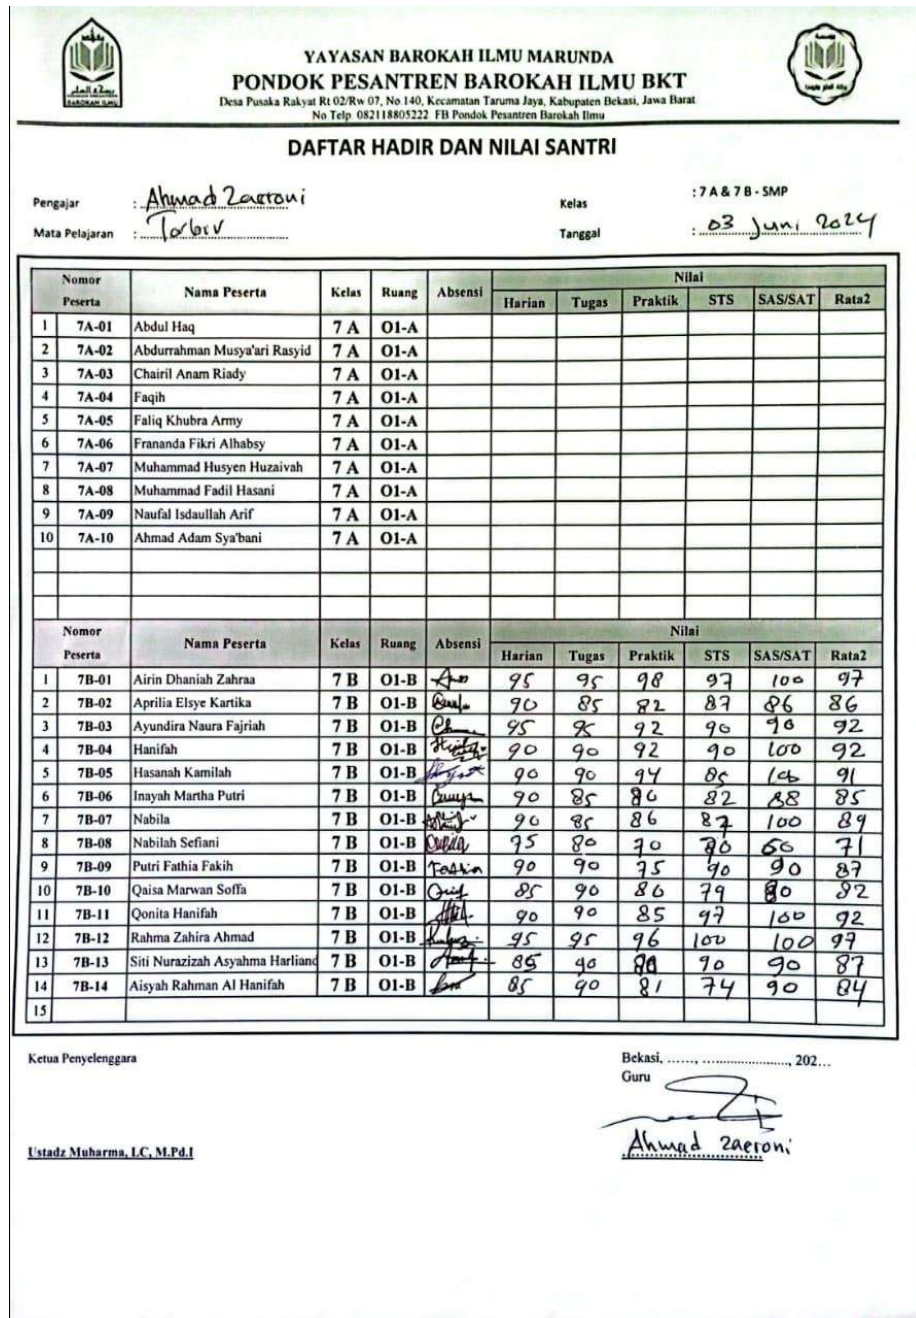 YAYASAN BAROKAH ILMU MARUNDA
PONDOK PESANTREN BAROKAH ILMU BKT
Desa Pusaka Rakyat Rt 02/Rw 07, No 140, Kecamatan Taruma Jaya, Kabupaten Bekasi, Jawa Barat
No Telp 082118805222 FB Pondok Pesantren Barokah Ilmu
BAROKAH ILMU
DAFTAR HADIR DAN NILAI SANTRI
Pengajar : Ahmad Zaeroni Kelas : 7 A & 7 B - SMP
Mata Pelajaran : Tanggal : 03 Juni 2024
Nomor Peserta Nama Peserta Kelas Ruang Absensi Nilai
Harian Tugas Praktik STS SAS/SAT Rata2
1 7A-01 Abdul Haq 7 A O1-A
2 7A-02 Abdurrahman Musya'ari Rasyid 7 A O1-A
3 7A-03 Chairil Anam Riady 7 A O1-A
4 7A-04 Faqih 7 A O1-A
5 7A-05 Faliq Khubra Army 7 A O1-A
6 7A-06 Frananda Fikri Alhabsy 7 A O1-A
7 7A-07 Muhammad Husyen Huzaivah 7 A O1-A
8 7A-08 Muhammad Fadil Hasani 7 A O1-A
9 7A-09 Naufal Isdaullah Arif 7 A O1-A
10 7A-10 Ahmad Adam Sya'bani 7 A O1-A
Nomor Peserta Nama Peserta Kelas Ruang Absensi Nilai
Harian Tugas Praktik STS SAS/SAT Rata2
1 7B-01 Airin Dhaniah Zahraa 7 B O1-B 95 95 98 97 100 97
2 7B-02 Aprilia Elsye Kartika 7 B O1-B 90 85 82 87 86 86
3 7B-03 Ayundira Naura Fajriah 7 B O1-B 95 95 92 90 90 92
4 7B-04 Hanifah 7 B O1-B 90 90 92 90 100 92
5 7B-05 Hasanah Kamilah 7 B O1-B 90 90 94 85 91
6 7B-06 Inayah Martha Putri 7 B O1-B 90 85 82 88 85
7 7B-07 Nabila 7 B O1-B 90 85 86 87 100 89
8 7B-08 Nabilah Sefiani 7 B O1-B 75 80 70 60 71
9 7B-09 Putri Fathia Fakih 7 B O1-B 90 90 75 90 90 87
10 7B-10 Qaisa Marwan Soffa 7 B O1-B 85 90 80 79 80 82
11 7B-11 Qonita Hanifah 7 B O1-B 90 90 85 97 100 92
12 7B-12 Rahma Zahira Ahmad 7 B O1-B 95 95 96 100 100 97
13 7B-13 Siti Nurazizah Asyahma Harliand 7 B O1-B 85 90 90 90 87
14 7B-14 Aisyah Rahman Al Hanifah 7 B O1-B 85 90 81 74 90 84
15
Ketua Penyelenggara Bekasi, ......, ......................, 202...
Guru
Ustadz Muharma, LC, M.Pd.I Ahmad Zaeroni